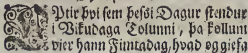 Eptir þvi sem þesse Dagur stendur
i Vikudaga Tolunni, þa kollum
vier hann Fimtadag, hvad og gi-